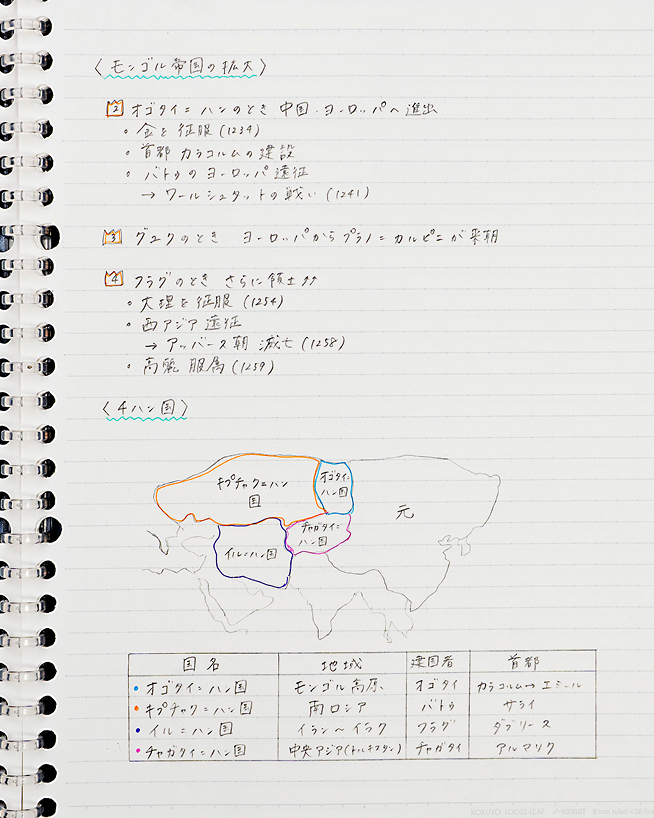 〈モンゴル帝国の拡大〉
2 オゴタイ=ハンのとき 中国・ヨーロッパへ進出
・金を征服(1234)
・首都カラコルムの建設
・バトゥのヨーロッパ遠征
→ワールシュタットの戦い(1241)
3 グユクのとき ヨーロッパからプラノ=カルピニが来朝
4 フラグのとき さらに領土↑↑
・大理を征服(1254)
・西アジア遠征
→アッバース朝 滅亡(1258)
・高麗 服属(1259)
〈4ハン国〉
キプチャク=ハン
国
オゴタイ=
ハン国
チャガタイ=
ハン国
元
イル=ハン国
国名 地域 建国者 首都
・オゴタイ=ハン国 モンゴル高原 オゴタイ カラコルム→エミール
・キプチャク=ハン国 南ロシア バトゥ サライ
・イル=ハン国 イラン〜イラク フラグ タブリーズ
・チャガタイ=ハン国 中央アジア(トルキスタン) チャガタイ アルマリク
KOKUYO LOOSE-LEAF